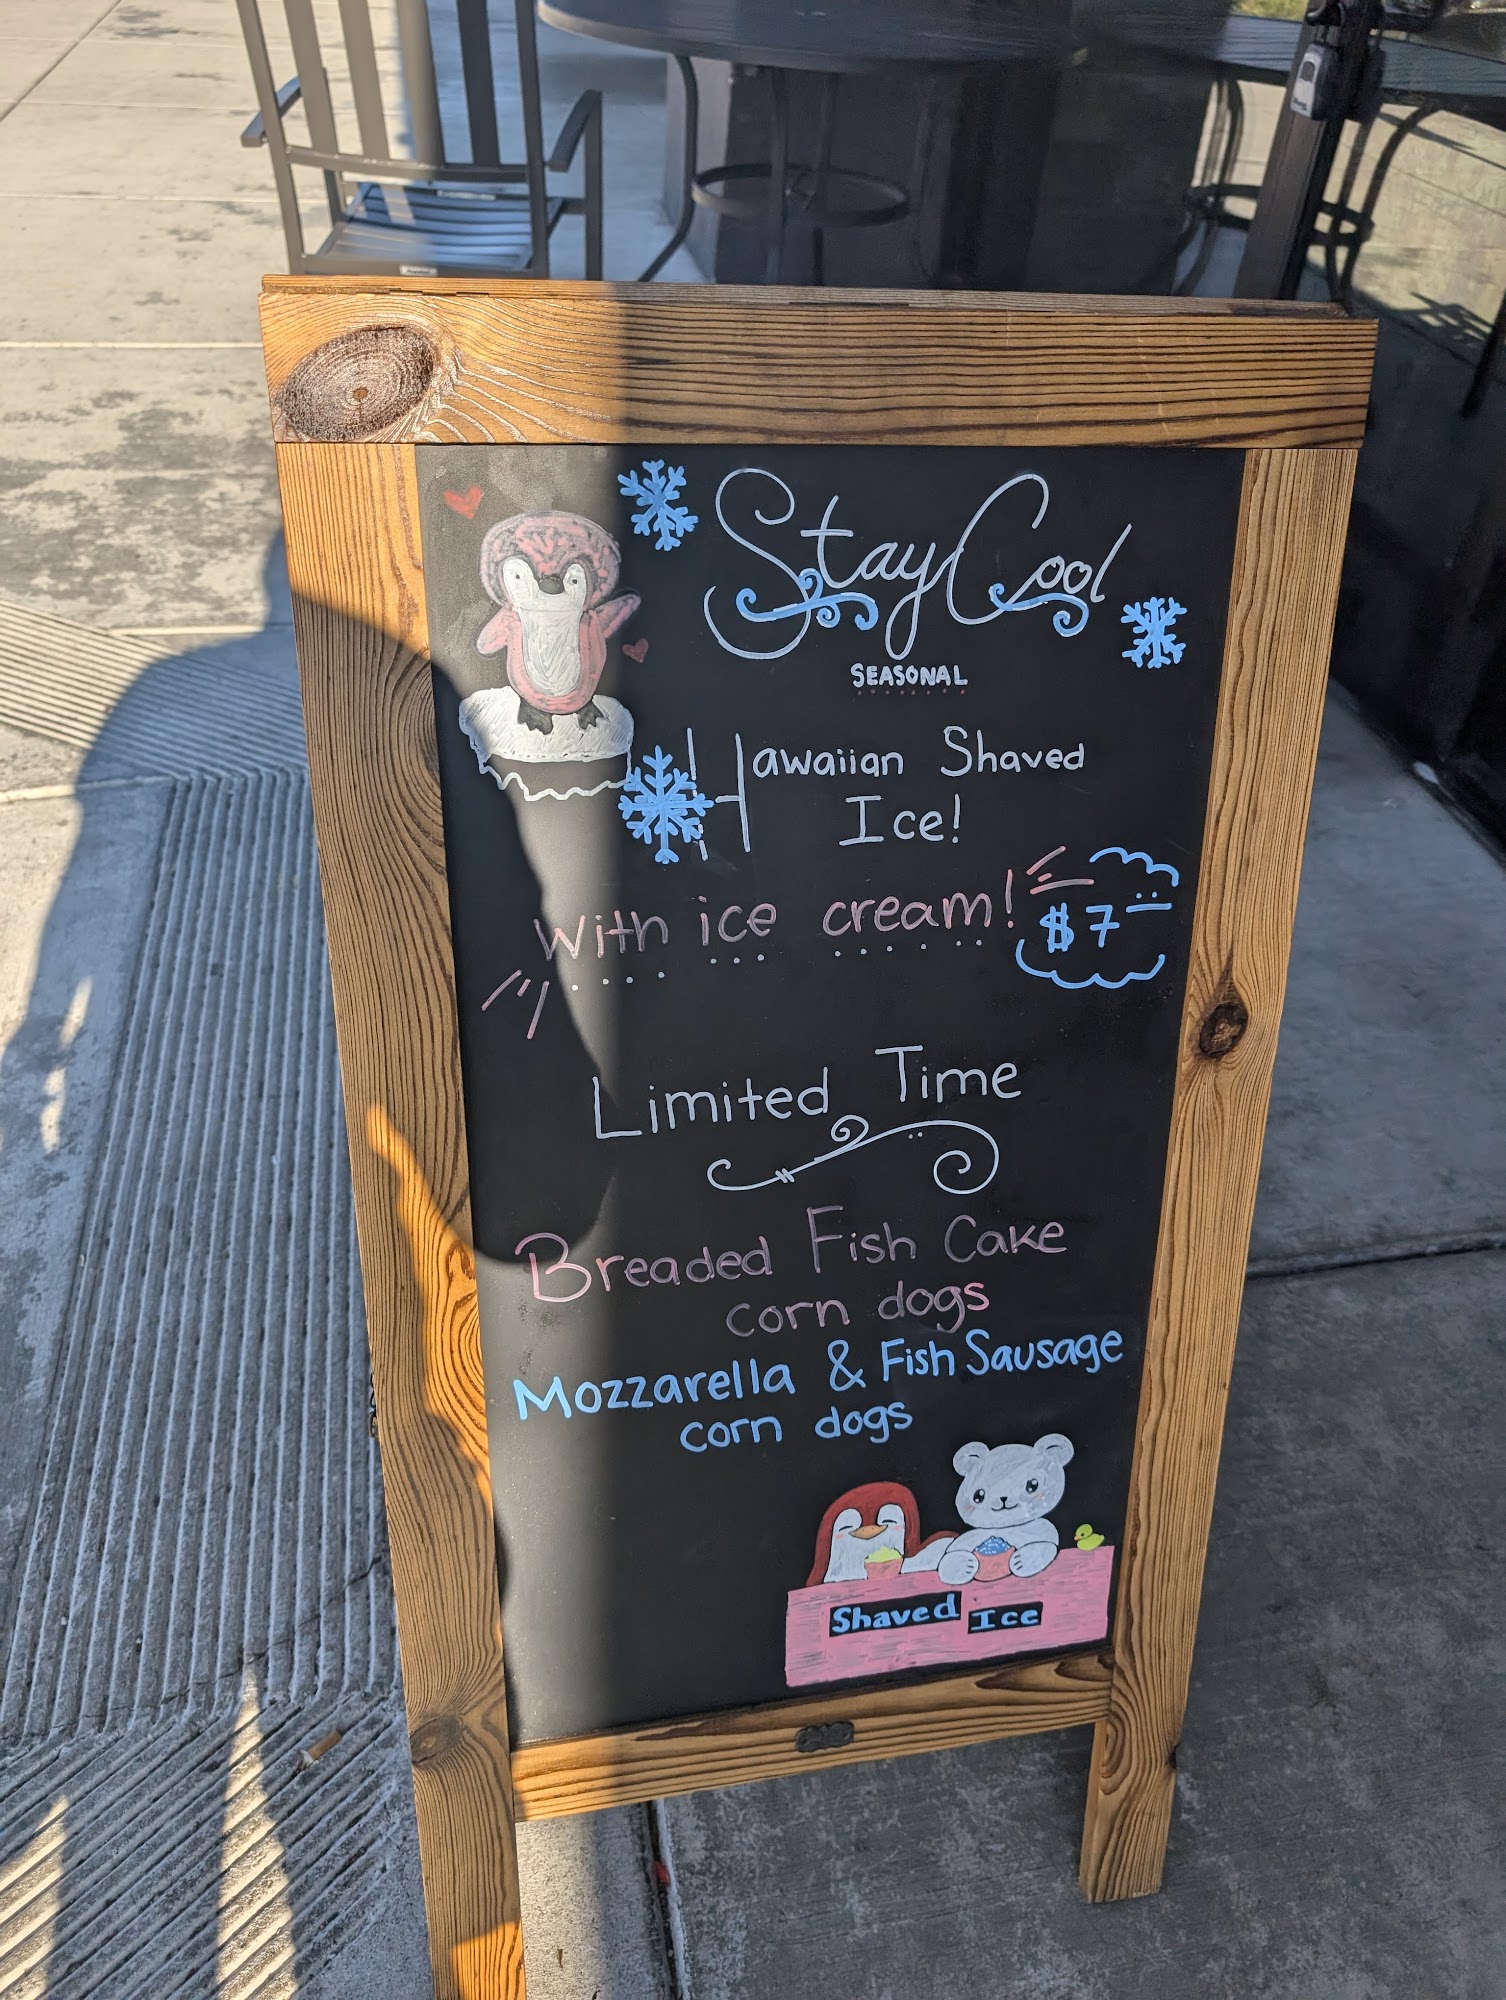 Stay Cool
SEASONAL
Hawaiian Shaved
Ice!
With ice cream!
$7
Limited Time
Breaded Fish Cake
corn dogs
Mozzarella & Fish Sausage
corn dogs
Shaved Ice